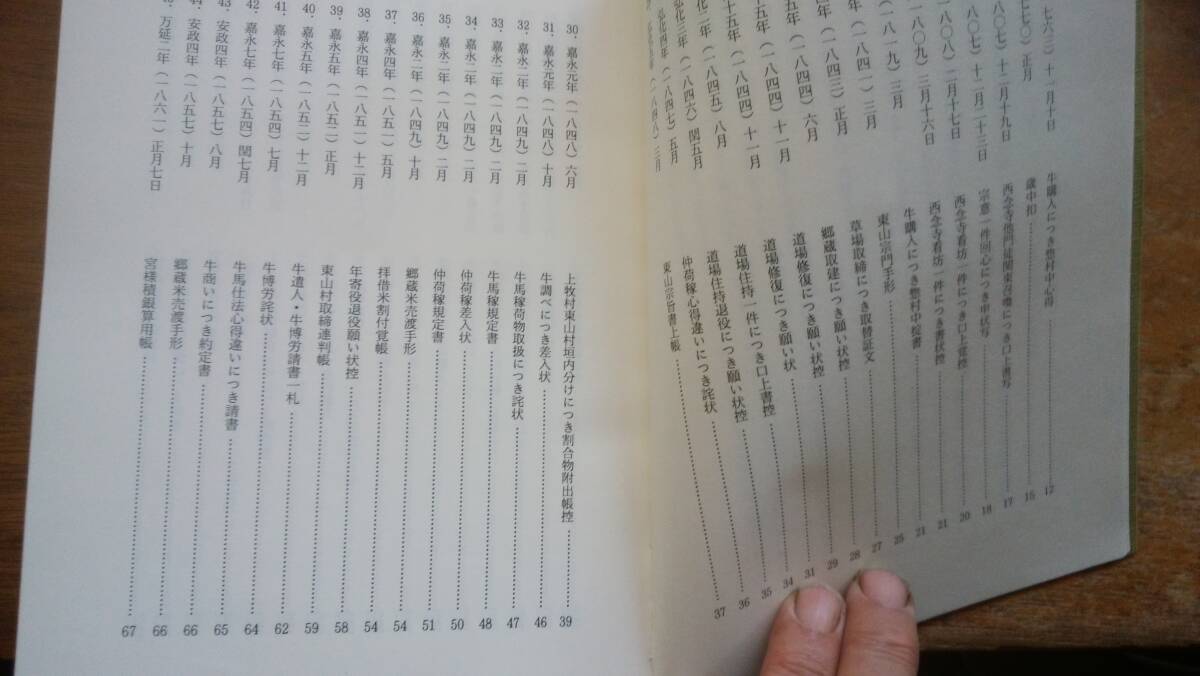 七六三）十一月十日　牛購入につき惣村中心得……12
七七〇）正月　歳中扣……15
八〇七）十二月十九日　西念寺他門徒関東召喚につき口上書写……17
八〇七）十二月二十三日　宗意一件回心につき申状写……18
八〇八）二月十七日　西念寺看坊一件につき口上覚控……20
一八〇九）三月十六日　西念寺看坊一件につき書状控……21
一八一九）三月　牛購入につき惣村中掟書……21
（一八四一）三月　東山宗門手形……25
年（一八四三）正月　草場取締につき取替証文……27
年（一八四四）六月　郷蔵取建につき願い状控……28
五年（一八四四）十一月　道場修復につき願い状控……29
十五年（一八四四）十一月　道場修復につき願い状……31
化二年（一八四五）八月　道場住持一件につき口上書控……34
弘化三年（一八四六）閏五月　道場住持退役につき願い状控……35
弘化四年（一八四七）五月　仲荷稼心得違いにつき詫状……36
（一八四八）三月　東山宗旨書上帳……37
30．嘉永元年（一八四八）六月　上牧村東山村垣内分けにつき割合物附出帳控……39
31．嘉永元年（一八四八）十月　牛調べにつき差入状……46
32．嘉永二年（一八四九）二月　牛馬稼荷物取扱につき詫状……47
33．嘉永二年（一八四九）二月　牛馬稼規定書……48
34．嘉永二年（一八四九）二月　仲荷稼差入状……50
35．嘉永二年（一八四九）二月　仲荷稼規定書……51
36．嘉永二年（一八四九）十月　郷蔵米売渡手形……54
37．嘉永四年（一八五一）五月　拝借米割付覚帳……54
38．嘉永四年（一八五一）十二月　年寄役退役願い状控……58
39．嘉永五年（一八五二）正月　東山村取締連判帳……59
40．嘉永五年（一八五二）十二月　牛遣人・牛博労請書一札……62
41．嘉永七年（一八五四）七月　牛博労詫状……64
42．嘉永七年（一八五四）閏七月　牛馬仕法心得違いにつき請書……65
43．安政四年（一八五七）八月　牛商いにつき約定書……66
44．安政四年（一八五七）十月　郷蔵米売渡手形……66
万延二年（一八六一）正月七日　宮様積銀算用帳……67